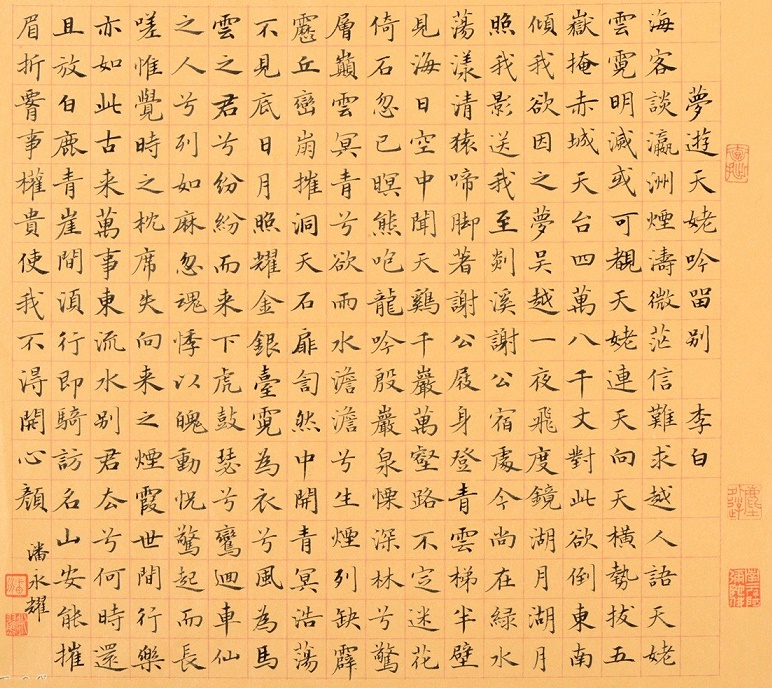 夢遊天姥吟留别 李白
海客談瀛洲煙濤微茫信難求越人語天姥
雲霓明滅或可覩天姥連天向天橫勢拔五
嶽掩赤城天台四萬八千丈對此欲倒東南
傾我欲因之夢吳越一夜飛度鏡湖月湖月
照我影送我至剡溪謝公宿處今尚在綠水
蕩漾清猿啼脚著謝公屐身登青雲梯半壁
見海日空中聞天鷄千巖萬壑路不定迷花
倚石忽已暝熊咆龍吟殷巖泉慄深林兮驚
層巔雲冥青兮欲而水澹澹兮生煙列缺霹
靂丘巒崩摧洞天石扉訇然中開青冥浩蕩
不見底日月照耀金銀臺霓為衣兮風為馬
雲之君兮紛紛而来下虎鼓瑟兮鸞迴車仙
之人兮列如麻忽魂悸以魄動怳驚起而長
嗟惟覺時之枕席失向来之煙霞世間行樂
亦如此古来萬事東流水别君去兮何時還
且放白鹿青崖間須行即騎訪名山安能摧
眉折腰事權貴使我不得開心顏
潘永耀